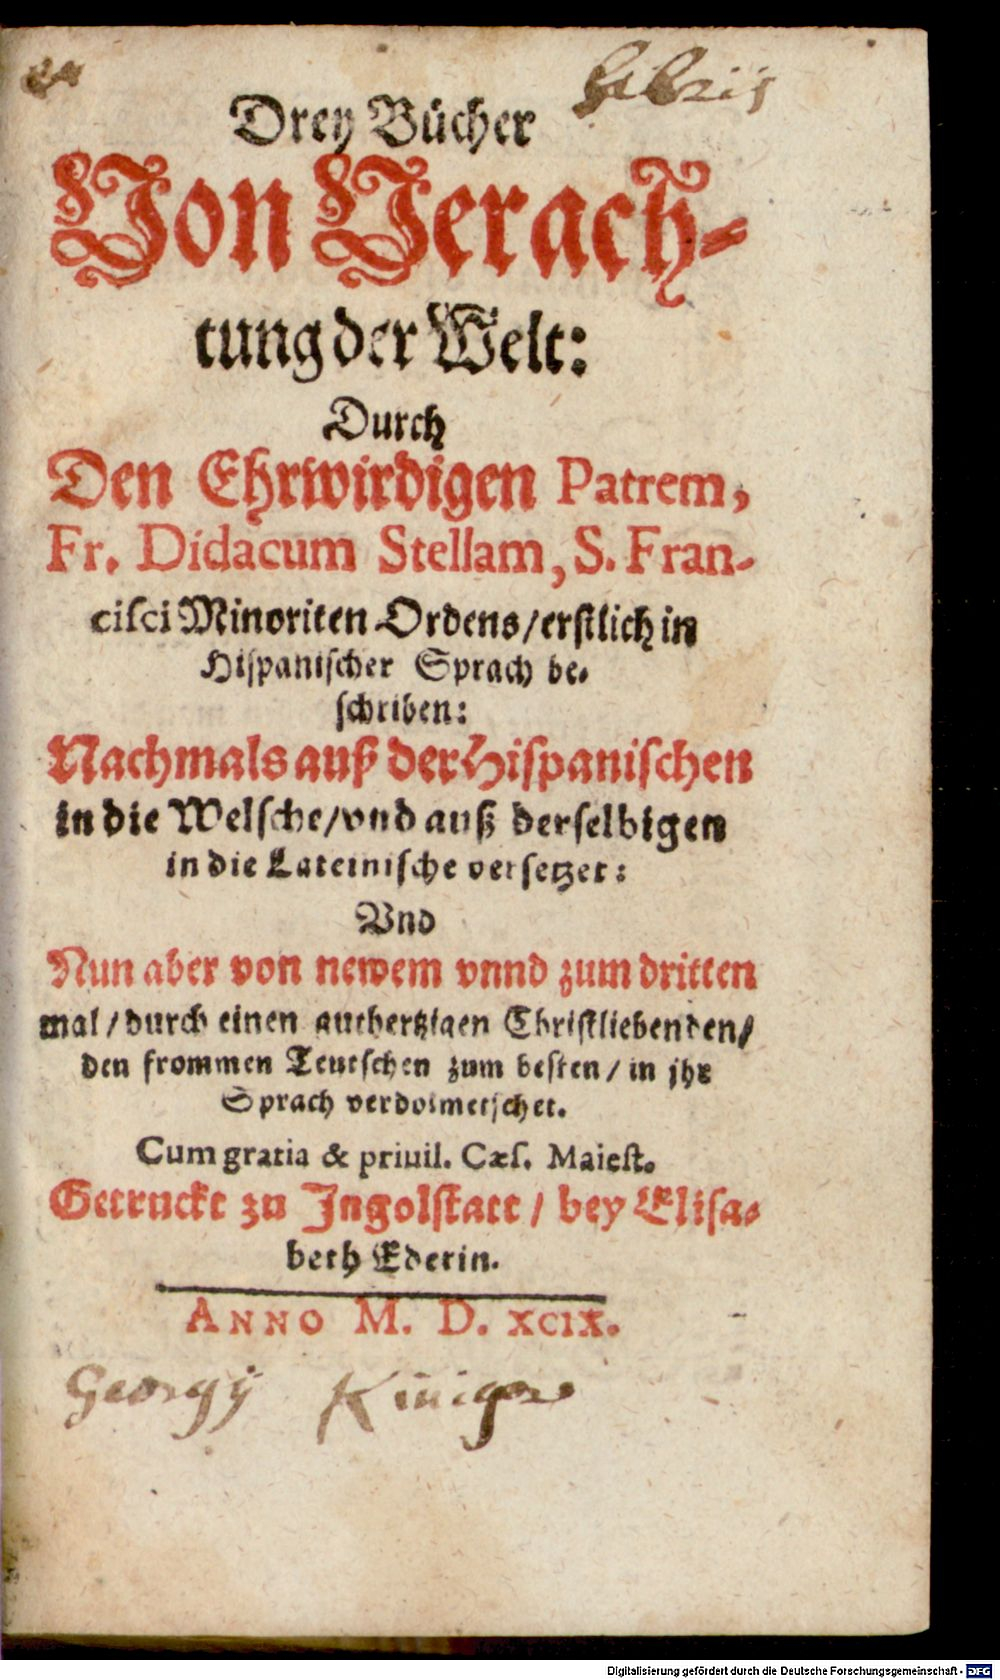 ex libris
Drey Bücher
Von Verach-
tung der Welt:
Durch
Den Ehrwirdigen Patrem,
Fr. Didacum Stellam, S. Fran-
cisci Minoriten Ordens/erstlich in
Hispanischer Sprach be-
schriben:
Nachmals auß der Hispanischen
in die Welsche/vnd auß derselbigen
in die Lateinische versetzet:
Vnd
Nun aber von newem vnnd zum dritten
mal/durch einen guthertzigen Christliebenden/
den frommen Teutschen zum besten/in jhr
Sprach verdolmetschet.
Cum gratia & priuil. Cæs. Maiest.
Getruckt zu Ingolstatt/bey Elisa-
beth Ederin.
ANNO M. D. XCIX.
Georgy
Digitalisierung gefördert durch die Deutsche Forschungsgemeinschaft - DFG